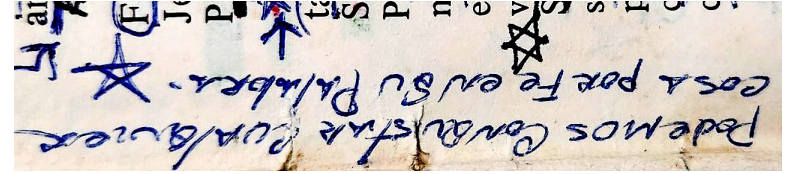 Podemos Conquistar Cualquier
cosa por Fe en Su Palabra.